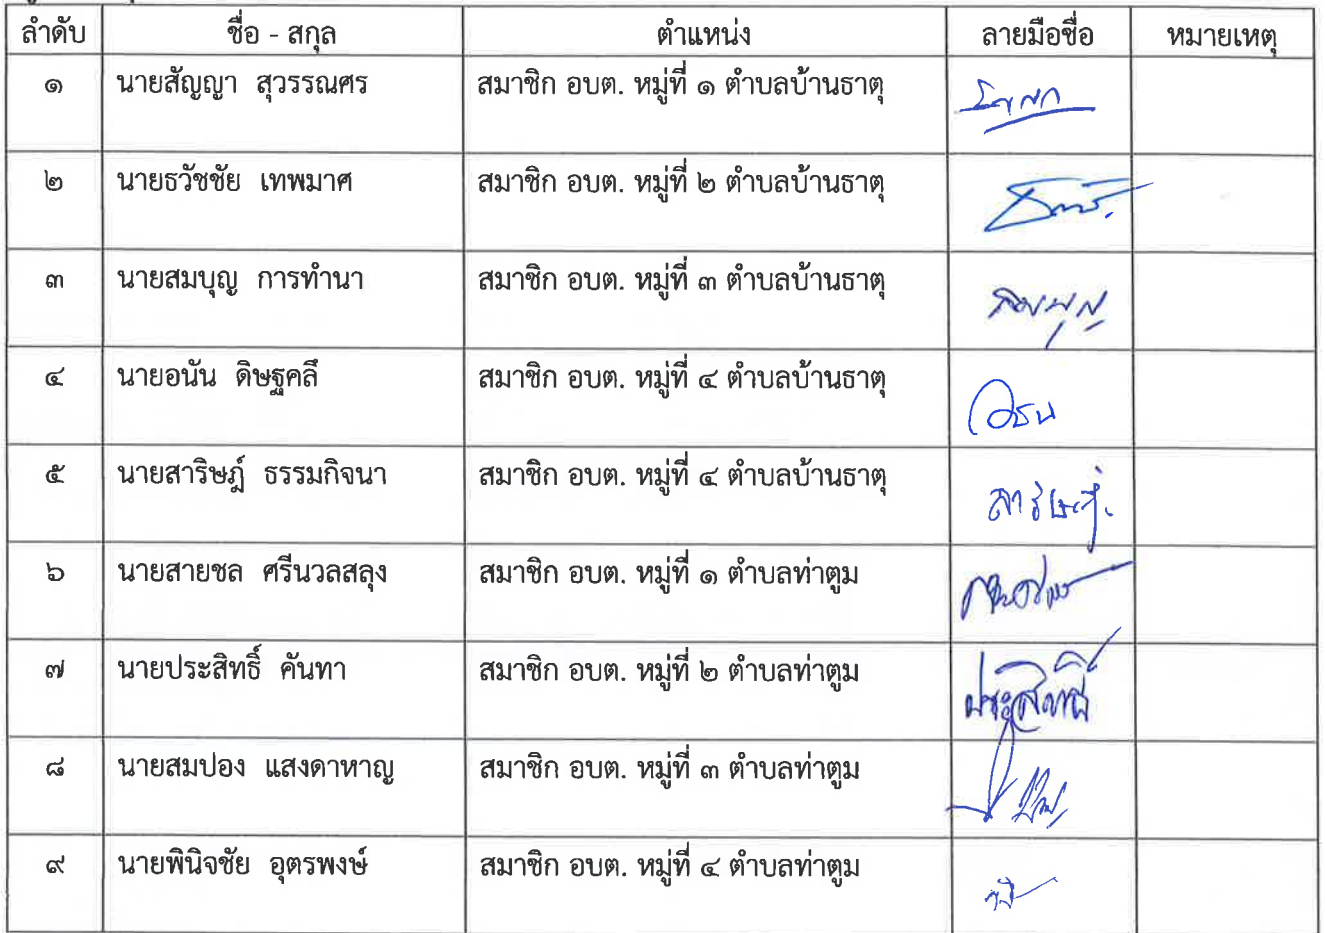 ลำดับ ชื่อ - สกุล ตำแหน่ง ลายมือชื่อ หมายเหตุ
๑ นายสัญญา สุวรรณศร สมาชิก อบต. หมู่ที่ ๑ ตำบลบ้านธาตุ
๒ นายธวัชชัย เทพมาศ สมาชิก อบต. หมู่ที่ ๒ ตำบลบ้านธาตุ
๓ นายสมบุญ การทำนา สมาชิก อบต. หมู่ที่ ๓ ตำบลบ้านธาตุ สมบุญ
๔ นายอนัน ดิษฐคลึ สมาชิก อบต. หมู่ที่ ๔ ตำบลบ้านธาตุ
๕ นายสาริษฎ์ ธรรมกิจนา สมาชิก อบต. หมู่ที่ ๔ ตำบลบ้านธาตุ สาริษฎ์
๖ นายสายชล ศรีนวลสลุง สมาชิก อบต. หมู่ที่ ๑ ตำบลท่าตูม
๗ นายประสิทธิ์ คันทา สมาชิก อบต. หมู่ที่ ๒ ตำบลท่าตูม ประสิทธิ์
๘ นายสมปอง แสงดาหาญ สมาชิก อบต. หมู่ที่ ๓ ตำบลท่าตูม
๙ นายพินิจชัย อุตรพงษ์ สมาชิก อบต. หมู่ที่ ๔ ตำบลท่าตูม